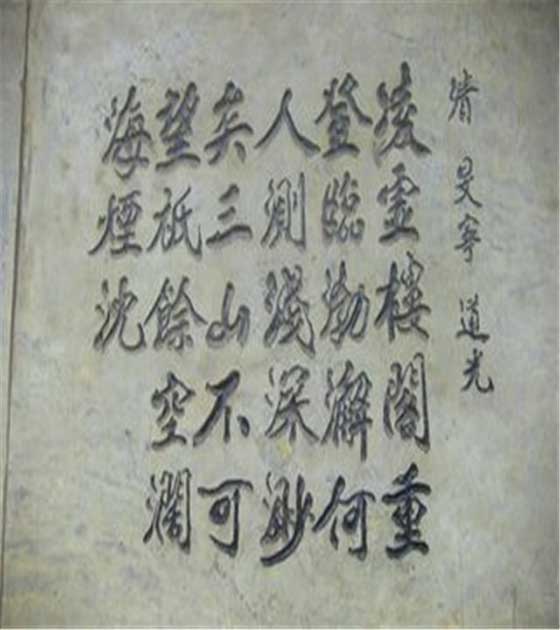 清 旻寧 道光
凌霊樓閣重
登臨渤澥何
人測淺深渺
矣三山不可
望祇餘空濶
海煙沈